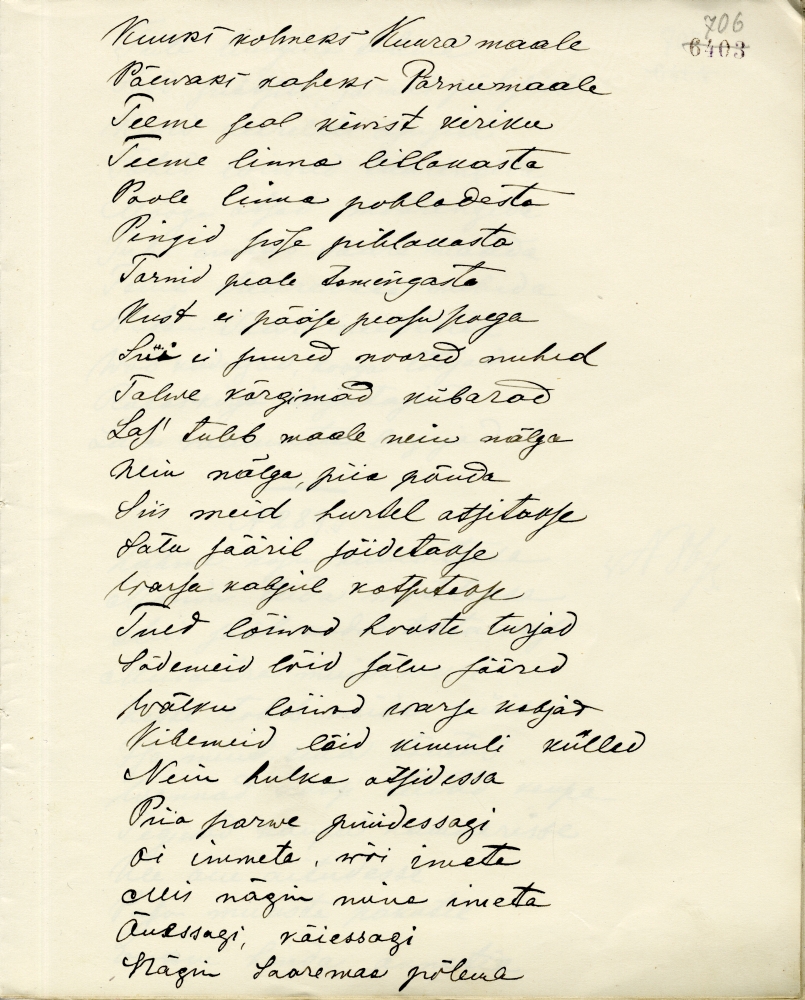 706
6403
Kuuks kolmeks Kuura maale
Päewaks kaheks Pärnumaale
Teeme seal kiwist kiriku
Teeme linna lillakasta
Poole linna pohladesta
Pingid sisse pihlakasta
Tornid peale tomingasta
Kust ei pääse peasu poega
Siis ei suured noored mehed
Talwe kõrgimad kübarad
Las' tuleb maale nein nälga
Nein nälga, piia põuda
Siis meid hurtel otsitakse
Satu sääril sõidetakse
Warsa kabjul katsutakse
Tued lõiwad hooste turjad
Sädemeid lõid sälu sääred
Wälku lõiwad warsa kabjad
Kibemeid lõid kimmli külled
Nein hulka otsidessa
Piia parwe püüdessagi
Oi immeta, wõi imeta
Mis nägin mina imeta
Õuessagi, käiessagi
Nägin Saaremaa põlema